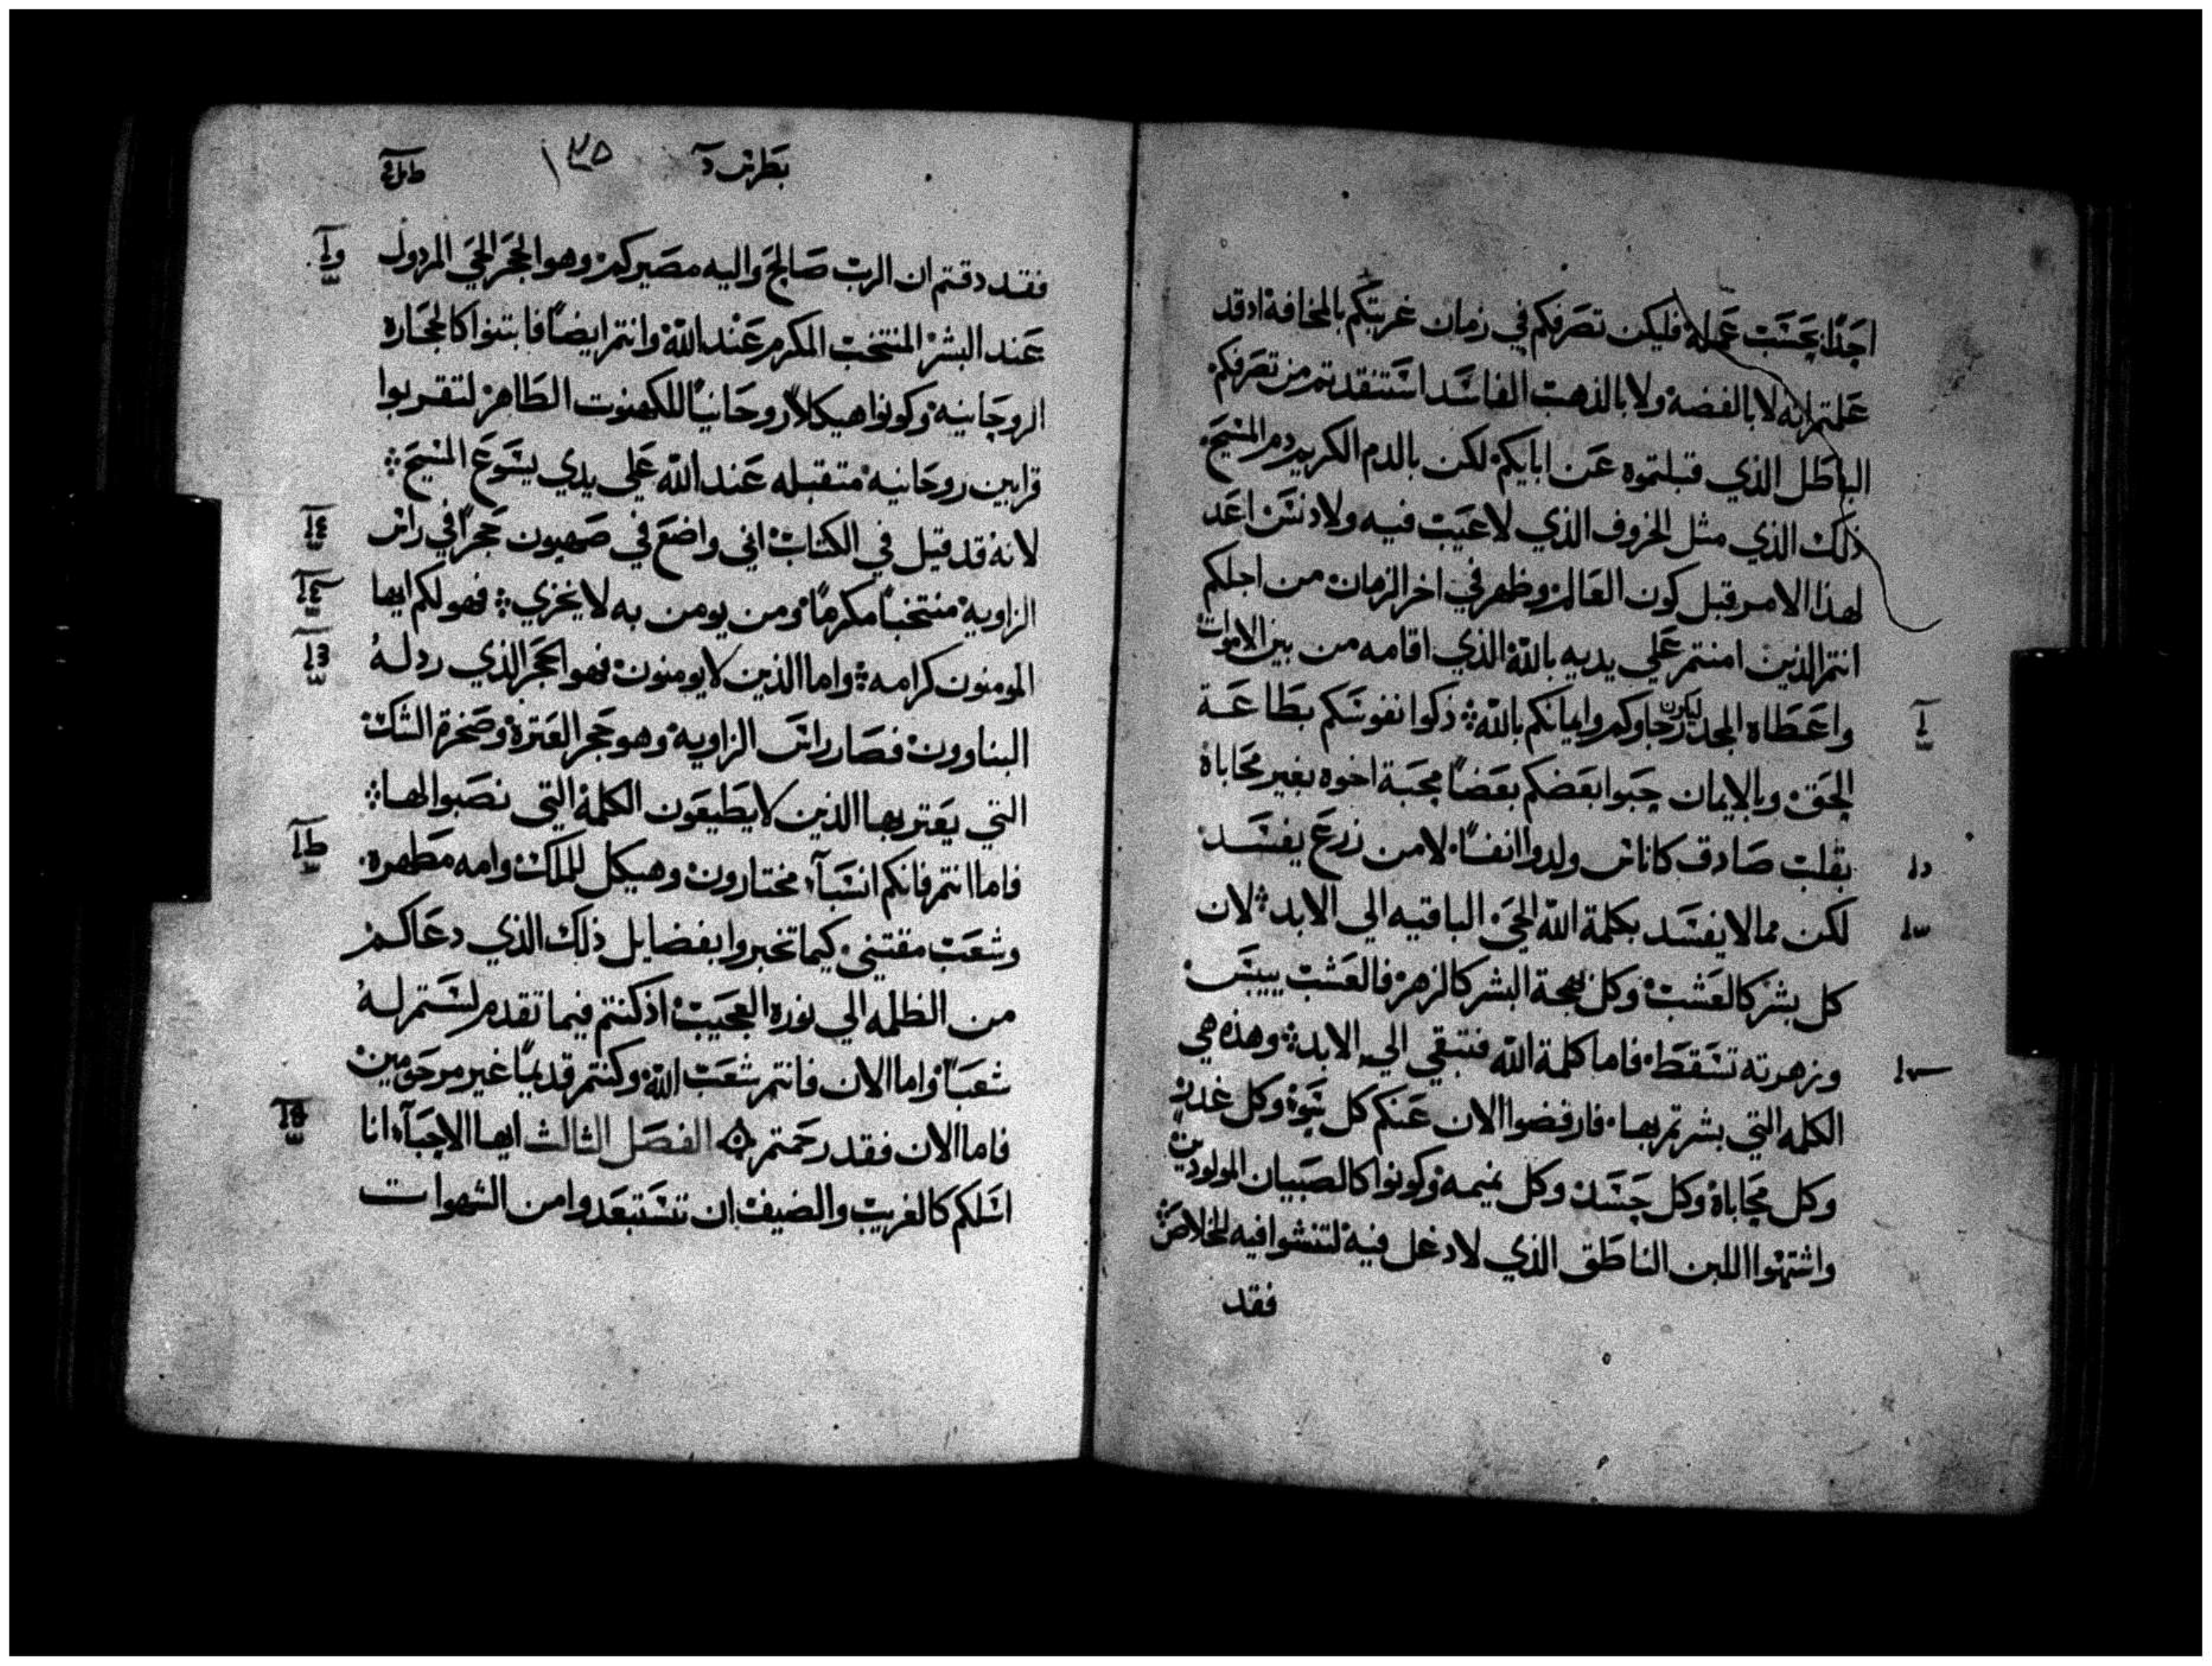 احدًا بحسب عمله فليكن تصرفكم في زمان غربتكم بالمخافة اد قد
علمتم انه لا بالفضه ولا بالذهب الفاسد استنقدتم من تصرفكم
الباطل الذي قبلتموه عن ابايكم لكن بالدم الكريم دم المسيح
ذلك الذي مثل الخروف الذي لا عيب فيه ولا دنس اعد
لهذا الامر قبل كون العالم وظهر في اخر الزمان من اجلكم
انتم الذين امنتم علي يديه بالله الذي اقامه من بين الاموات
واعطاه المجد ليكون رجاوكم وايمانكم بالله ذكوا نفوسكم بطاعة
الحق وبالايمان حبوا بعضكم بعضًا محبة اخوه بغير محاباة
بقلب صادق كاناس ولدوا انفًا لا من زرع يفسد
لكن مما لا يفسد بكلمة الله الحي الباقيه الي الابد لان
كل بشر كالعشب وكل بهجة البشر كالزهر فالعشب ييبس
وزهرته تسقط فاما كلمة الله فتبقي الي الابد وهذه هي
الكلمه التي بشرتم بها فارفضوا الان عنكم كل سوء وكل غدر
وكل محاباة وكل حسد وكل نميمه وكونوا كالصبيان المولودين
واشتهوا اللبن الناطق الذي لا دغل فيه لتنشوا فيه للخلاص
فقد
بطرس
١٣٥
فقد دقتم ان الرب صالح واليه مصيركم وهو الحجر الحي المردول
عند البشر المنتخب المكرم عند الله وانتم ايضًا فابتنوا كالحجاره
الروحانيه وكونوا هيكلاً روحانيًا للكهنوت الطاهر لتقربوا
قرابين روحانيه متقبله عند الله علي يدي يسوع المسيح
لانه قد قيل في الكتاب اني واضع في صهيون حجرًا في راس
الزاويه منتخبًا مكرمًا ومن يومن به لا يخزي فهو لكم ايها
المومنون كرامه واما الذين لا يومنون فهو الحجر الذي ردله
البناوون فصار راس الزاويه وهو حجر العترة وصخرة الشك
التي يعتر بها الذين لا يطيعون الكلمه التي نصبوا لها
فاما انتم فانكم انسباء مختارون وهيكل للملك وامه مطهره
وشعب مقتني كيما تخبروا بفضايل ذلك الذي دعاكم
من الظلمه الي نوره العجيب اذ كنتم فيما تقدم لستم له
شعبًا واما الان فانتم شعب الله وكنتم قديمًا غير مرحومين
فاما الان فقد رحمتم الفصل الثالث ايها الاحباء انا
اسلكم كالغريب والضيف ان تستبعدوا من الشهوات